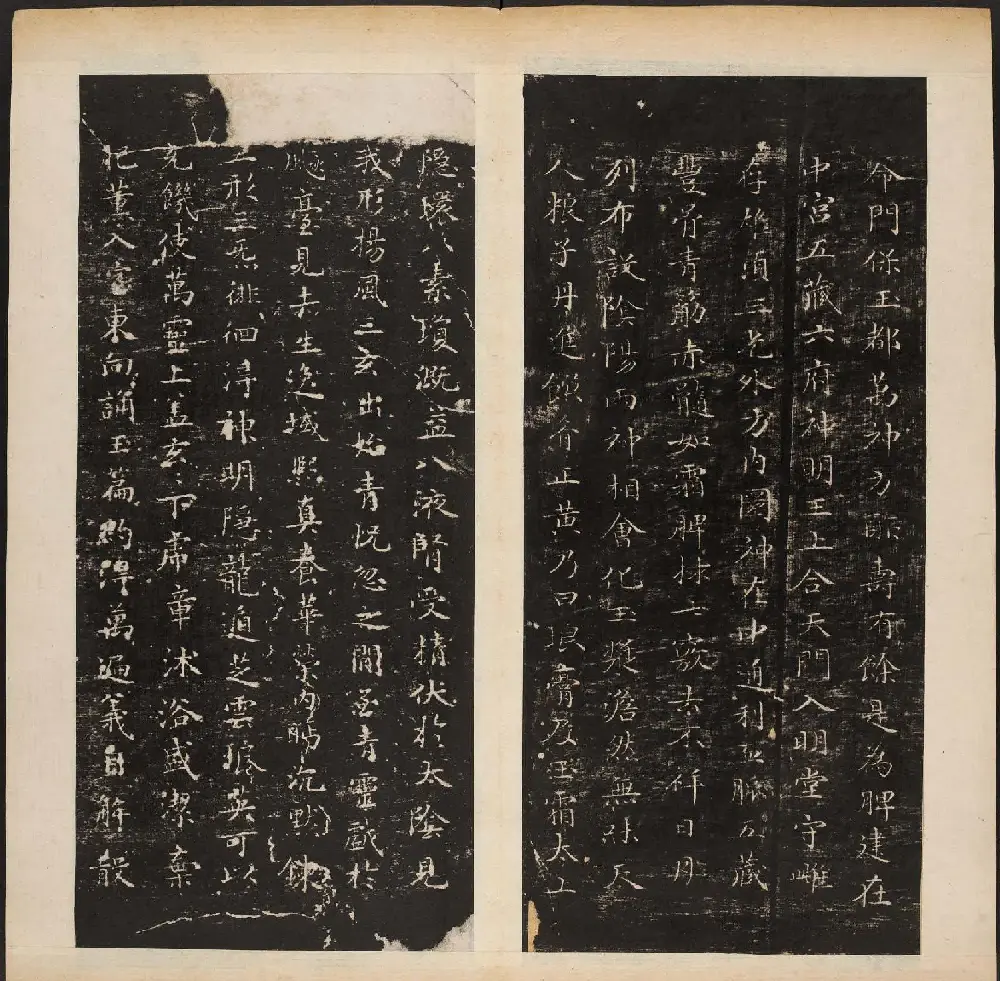 命門保玉都萬神方酢壽有餘是為脾建在
中宮五藏六府神明王上合天門入明堂守雌
存雄頂三光外方內圓神在中通利血脈五藏
豐骨青筋赤髓如霜脾捄七竅去不祥日月
列布設陰陽兩神相會化玉漿澹然無味天
人粮子丹進饌肴正黃乃曰琅膏及玉霜太上
隱環八素瓊溉益八液腎受精伏於太陰見
我形揚風三玄出始青恍忽之間至青靈戲於
飈臺見赤生逸域熙真養華榮內眄沉默鍊
五形三炁徘徊淂神明隱龍遁芝雲琅英可以
充饑使萬靈上盖玄〻下虎章沐浴盛潔棄
肥薰入室東向誦玉篇約得萬遍義自鮮散